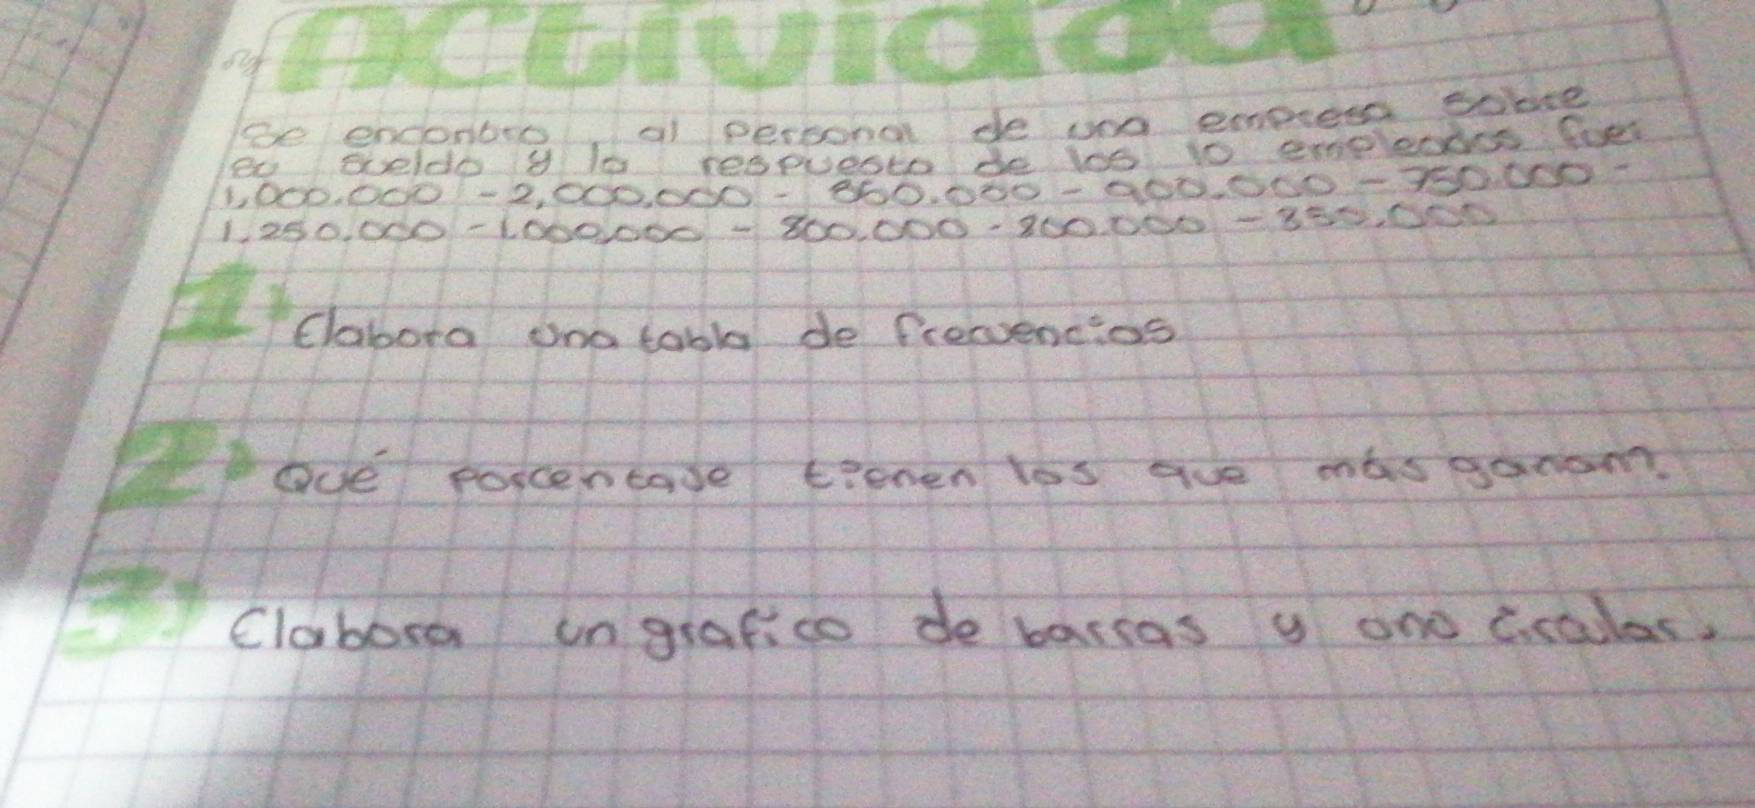 Actividad
Se encontro al personal de una empresa sobre
su sueldo y la respuesta de los 10 empleados fue:
1,000.000 - 2,000.000 - 860.000 - 900.000 - 750.000 -
1,250.000 - 1.000.000 - 800.000 - 800.000 - 850.000
1) Elabora una tabla de frecuencias
2) Qué porcentaje tienen los que más ganan?
3) Elabora un grafico de barras y uno circular.